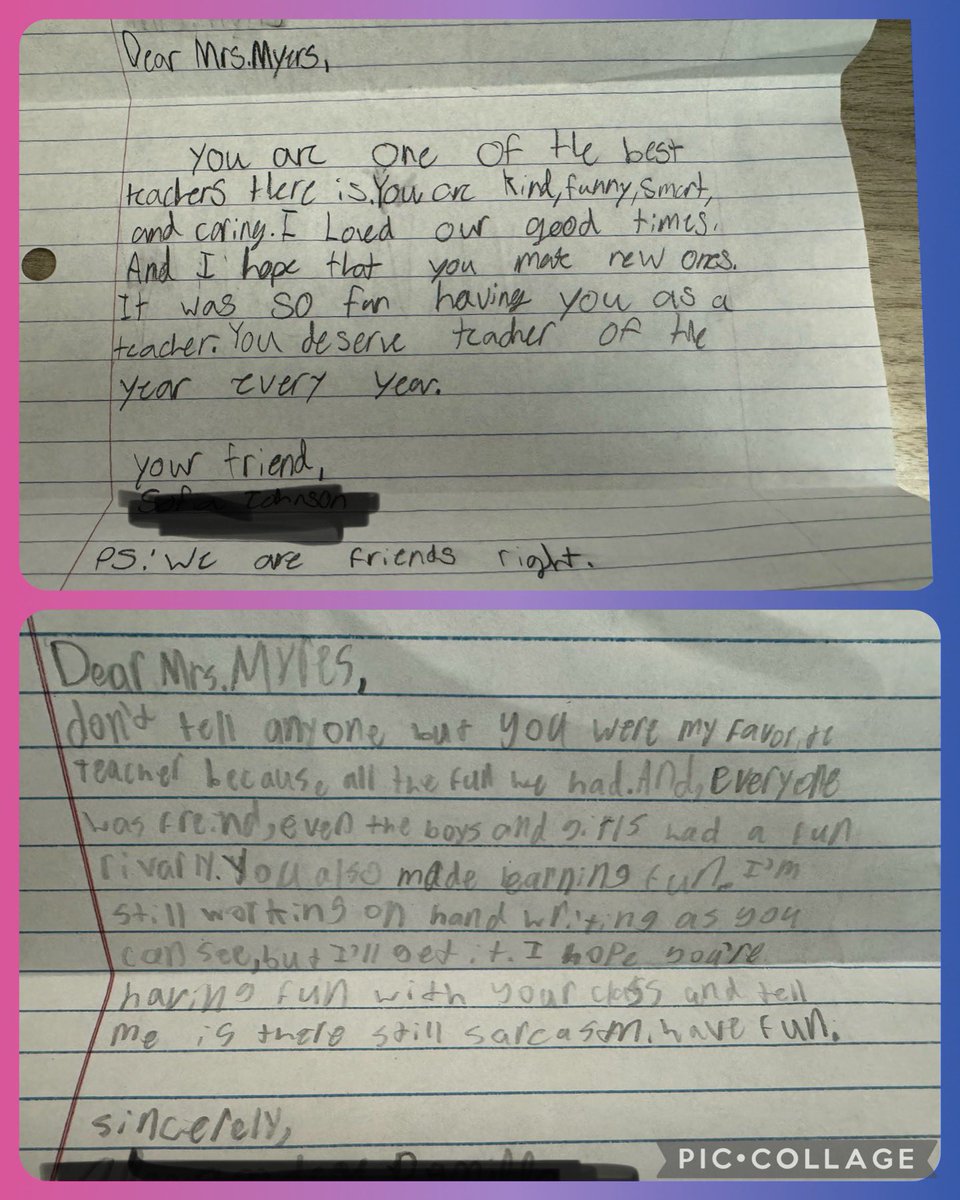 Dear Mrs.Myers,
You are one of the best
teachers there is.You are kind,funny,smart,
and caring.I Loved our good times.
And I hope that you make new ones.
It was so fun having you as a
teacher.You deserve teacher of the
year every year.
your friend,
PS:We are friends right.
Dear Mrs.Myres,
don't tell anyone but you were my favorite
teacher because all the fun we had.And,everyone
was freind,even the boys and girls had a fun
rivalry.You also made learning fun. I'm
still working on hand writing as you
can see,but I'll get it. I hope you're
having fun with your class and tell
me is there still sarcasm.have fun.
sincerely,
PIC•COLLAGE